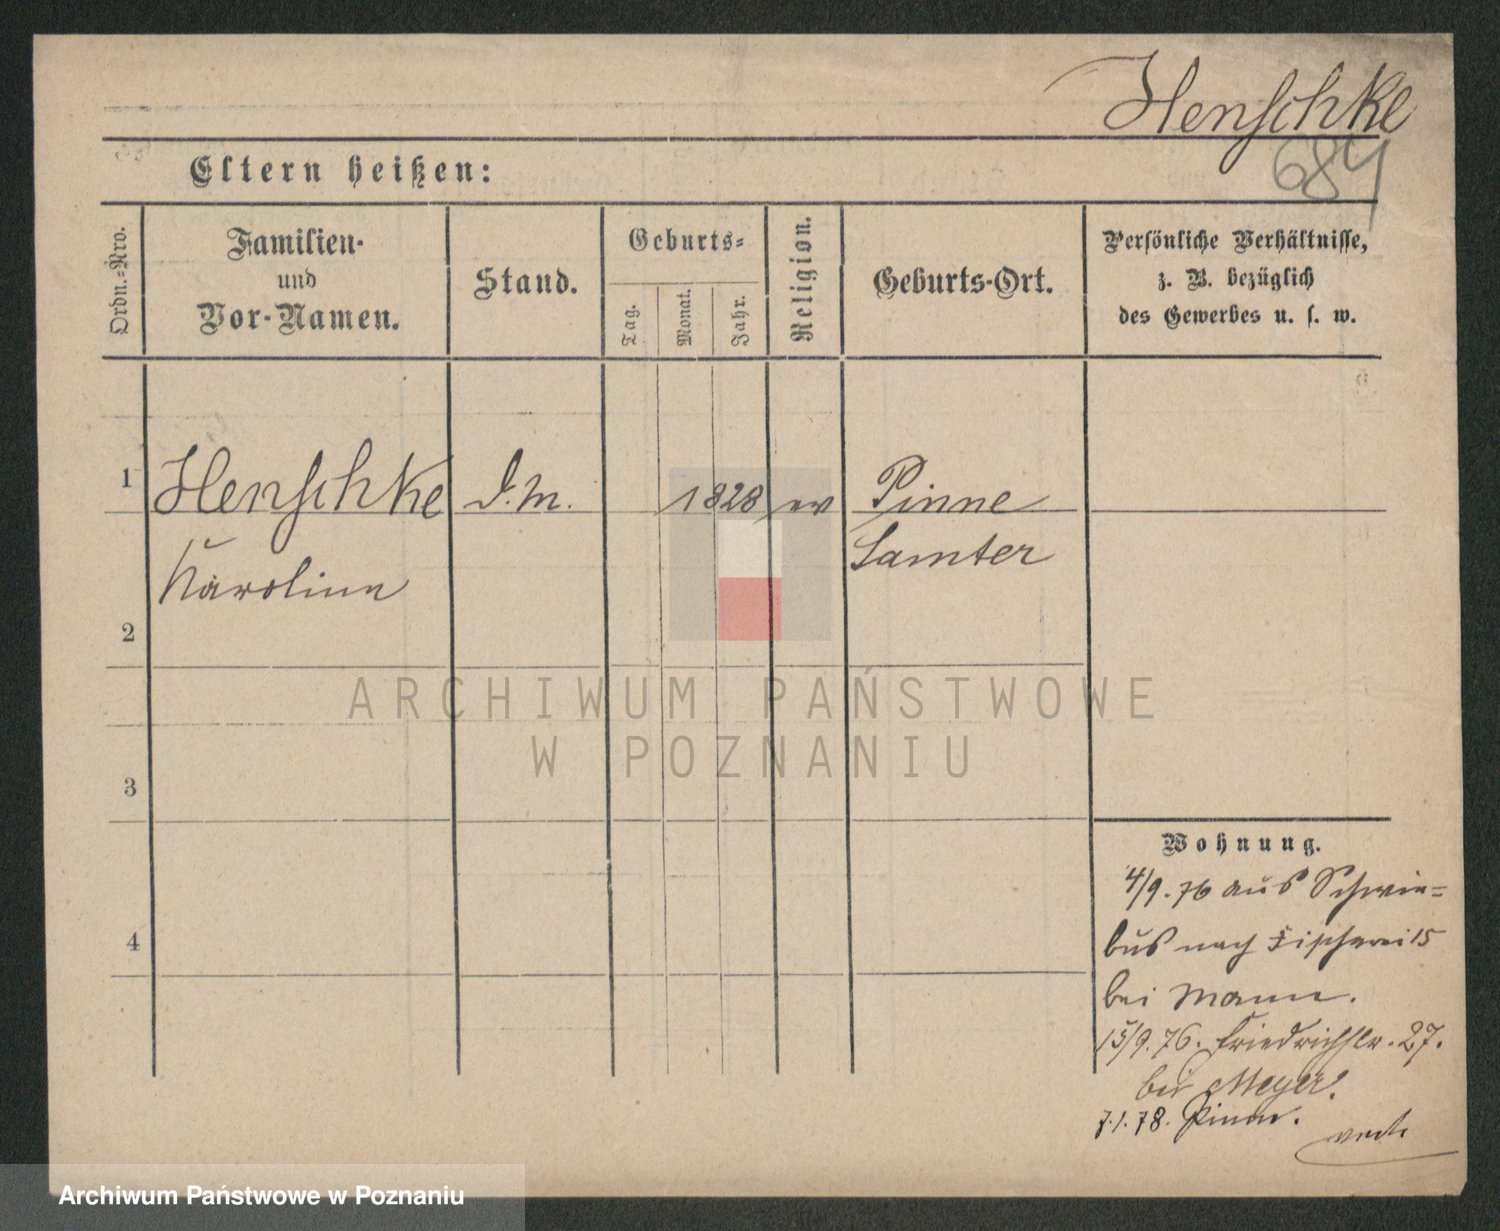 Henschke
684
Eltern heißen:
Ordn.-Nro.
Familien-
und
Vor-Namen.
Stand.
Geburts-
Tag.
Monat.
Jahr.
Religion.
Geburts-Ort.
Persönliche Verhältnisse,
z. B. bezüglich
des Gewerbes u. s. w.
1
Henschke
D. M.
1828
ev
Pinne
Samter
Karoline
2
3
4
Wohnung.
4/9. 76 aus Schwie=
bus nach Fischerei 15
bei Mann.
15/9. 76. Friedrichstr. 27.
bei Meyer.
7.1.78. Pinne.
ARCHIWUM PAŃSTWOWE
W POZNANIU
Archiwum Państwowe w Poznaniu